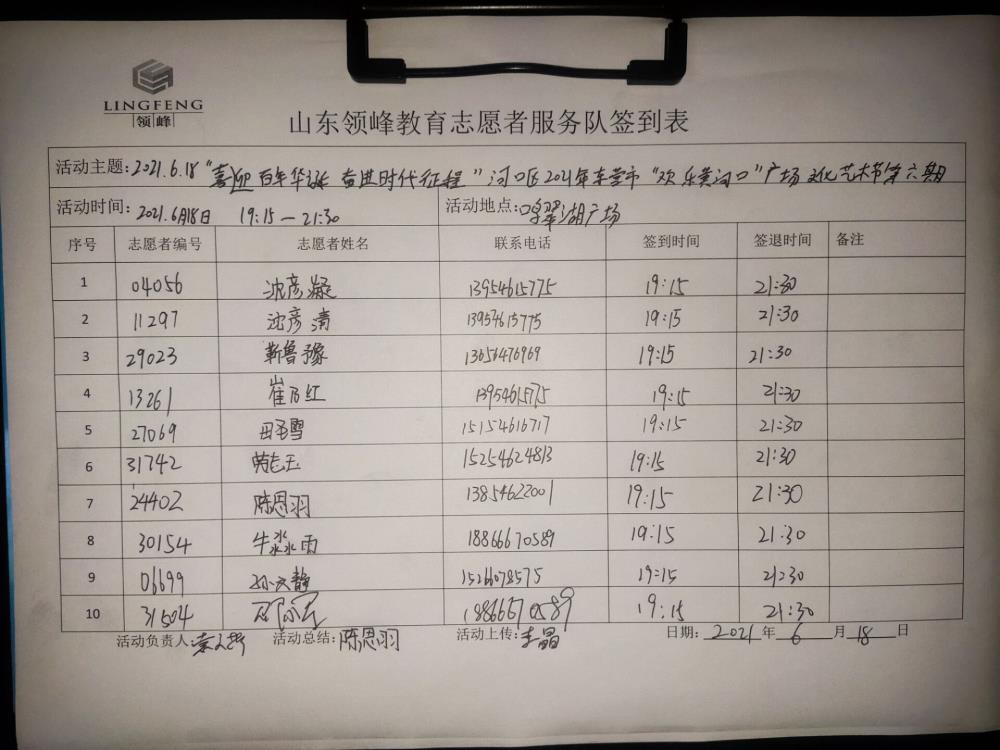 LINGFENG
领峰
山东领峰教育志愿者服务队签到表
活动主题:2021.6.18"喜迎百年华诞 奋进时代征程"河口区2021年东营市"欢乐黄河口"广场文化艺术节第六期
活动时间:2021.6月18日 19:15—21:30 活动地点:鸣翠湖广场
序号 志愿者编号 志愿者姓名 联系电话 签到时间 签退时间 备注
1 04056 沈彦凝 13954615775 19:15 21:30
2 11297 沈彦清 13954615775 19:15 21:30
3 29023 靳鲁豫 13656476969 19:15 21:30
4 13261 崔乃红 13954615775 19:15 21:30
5 27069 15154616717 19:15 21:30
6 31742 15254624813 19:15 21:30
7 24402 陈恩羽 13854622001 19:15 21:30
8 30154 牛淼雨 18866670589 19:15 21:30
9 06699 孙文静 15266078575 19:15 21:30
10 31504 18866670589 19:15 21:30
活动负责人: 活动总结:陈恩羽 活动上传:李晶 日期: 2021 年 6 月 18 日